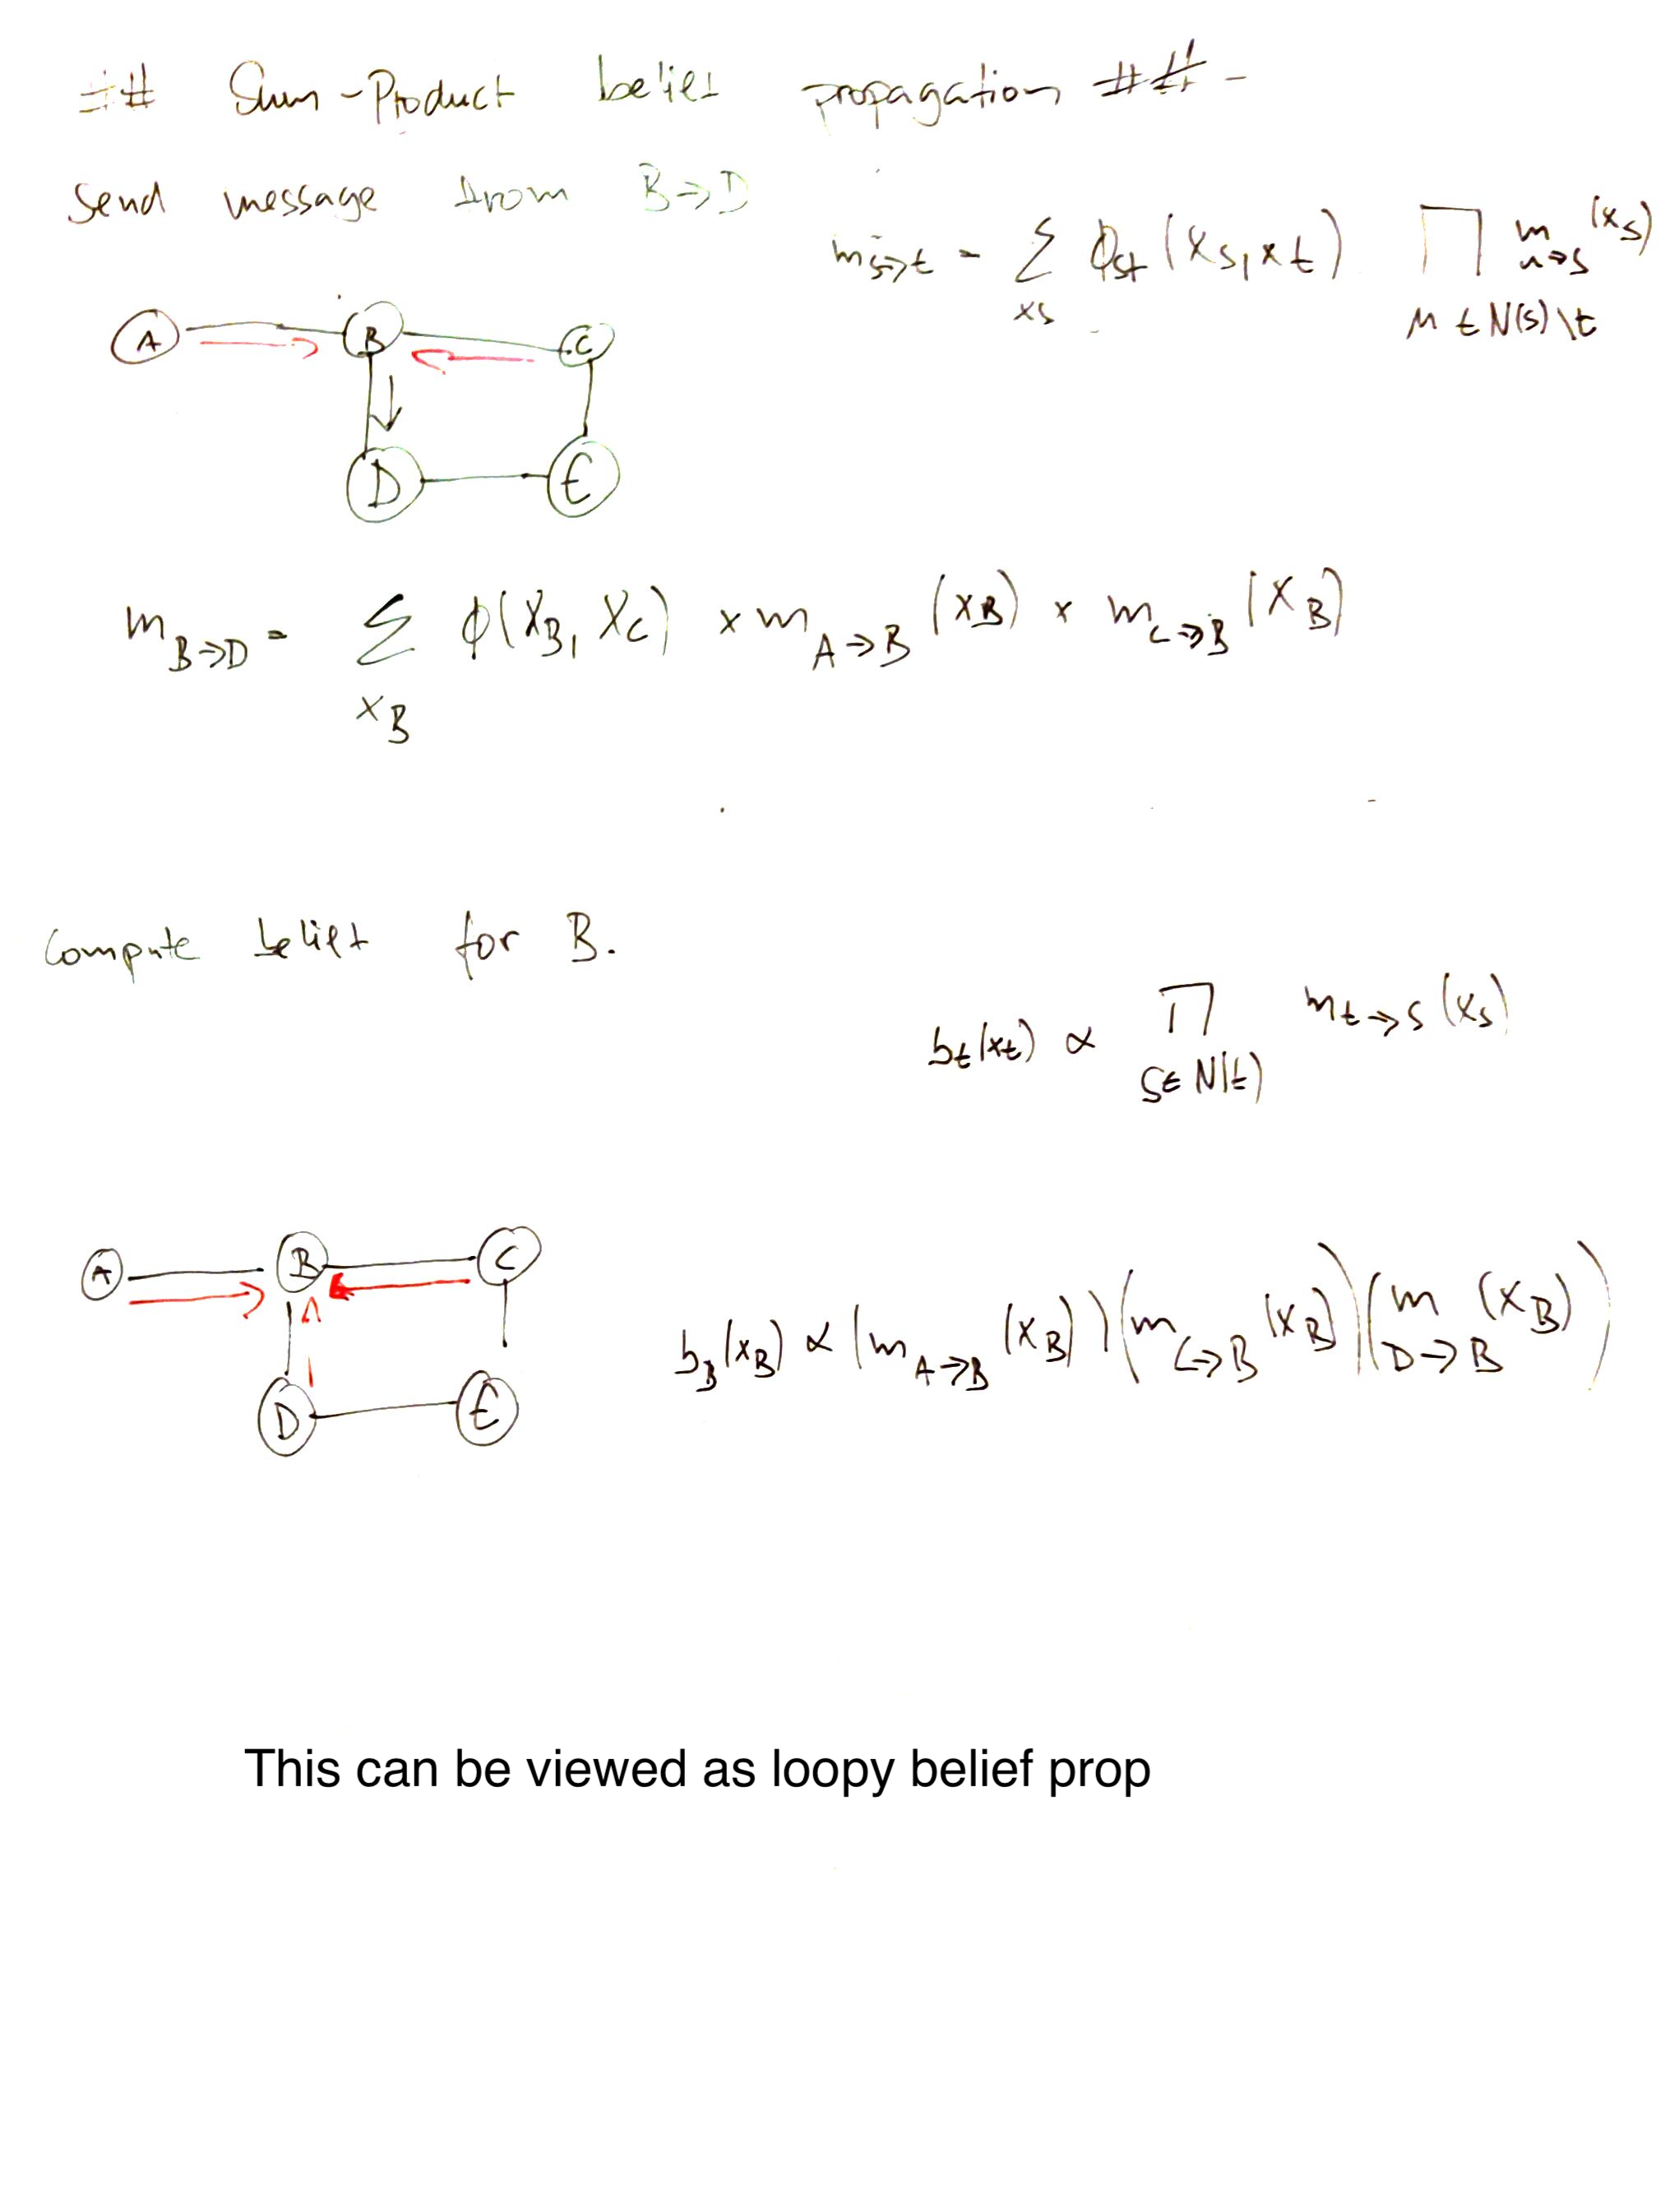 ## Sum-Product belief propagation ## -
Send message from B→D
m s→t = Σ xs ϕst (xs, xt) ∏ u ∈ N(s)\t m u→s (xs)
A B C
D E
m B→D = Σ xB ϕ(XB, XC) × m A→B (xB) × m C→B (XB)
Compute belief for B.
bt(xt) ∝ ∏ s∈N(t) m t→s (xs)
A B C
D E
bB(xB) ∝ (m A→B (xB)) (m C→B (xB)) (m D→B (xB))
This can be viewed as loopy belief prop